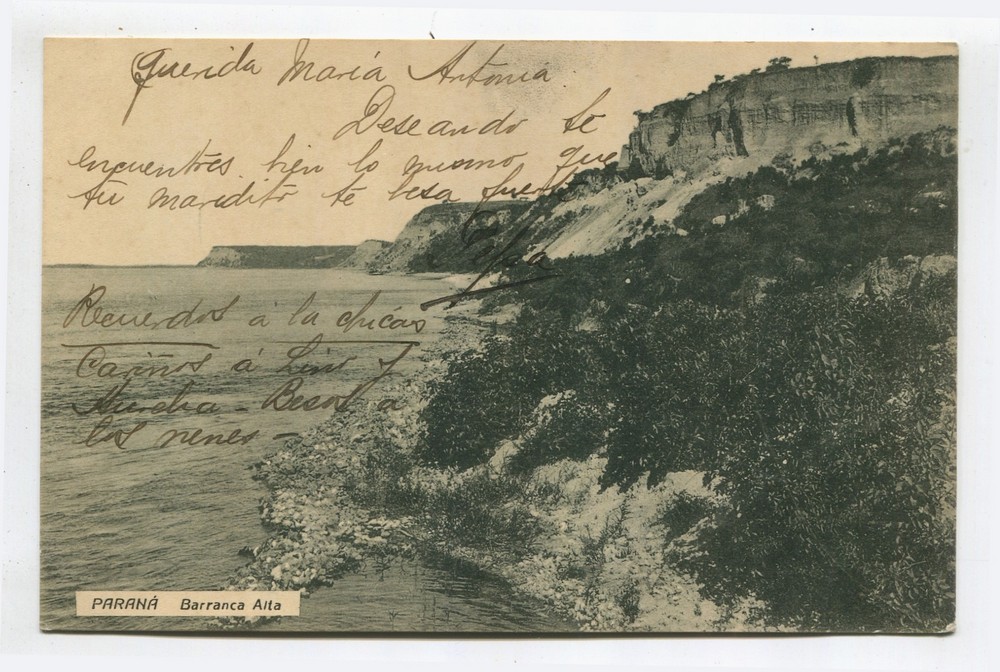 Querida María Antonia
Deseando te
encuentres bien lo mismo que
tu maridito te besa fuerte
Pepa
Recuerdos á la chicas
Cariños á Lino y
Aurelia - Besos a
los nenes -
PARANÁ Barranca Alta